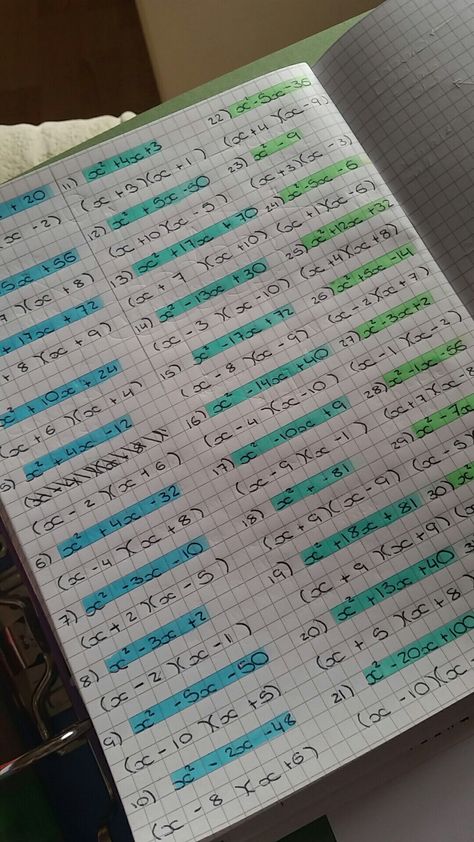 + 20
x - 2)
5x + 56
7)(x + 8)
+ 17x + 72
+ 8)(x + 9)
x² + 10x + 24
(x + 6)(x + 4)
5) x² + 4x - 12
(x - 2)(x + 6)
6) x² + 4x - 32
(x - 4)(x + 8)
7) x² - 3x - 10
(x + 2)(x - 5)
8) x² - 3x + 2
(x - 2)(x - 1)
9) x² - 5x - 50
(x - 10)(x + 5)
10) x² - 2x - 48
(x - 8)(x + 6)
11) x² + 4x + 3
(x + 3)(x + 1)
12) x² + 5x - 50
(x + 10)(x - 5)
13) x² + 17x + 70
(x + 7)(x + 10)
14) x² - 13x + 30
(x - 3)(x - 10)
15) x² - 17x + 72
(x - 8)(x - 9)
16) x² - 14x + 40
(x - 4)(x - 10)
17) x² - 10x + 9
(x - 9)(x - 1)
18) x² + - 81
(x + 9)(x - 9)
19) x² + 18x + 81
(x + 9)(x + 9)
20) x² + 13x + 40
(x + 5)(x + 8
21) x² - 20x + 100
(x - 10)(x -
22) x² - 5x - 36
(x + 4)(x - 9)
23) x² - 9
(x + 3)(x - 3)
24) x² - 5x - 6
(x + 1)(x - 6)
25) x² + 12x + 32
(x + 4)(x + 8)
26) x² + 5x - 14
(x - 2)(x + 7)
27) x² - 3x + 2
(x - 1)(x - 2)
28) x² - 1x - 56
(x + 7)(x - 8
29) x² - 7x
(x - 5
30) x²
(x